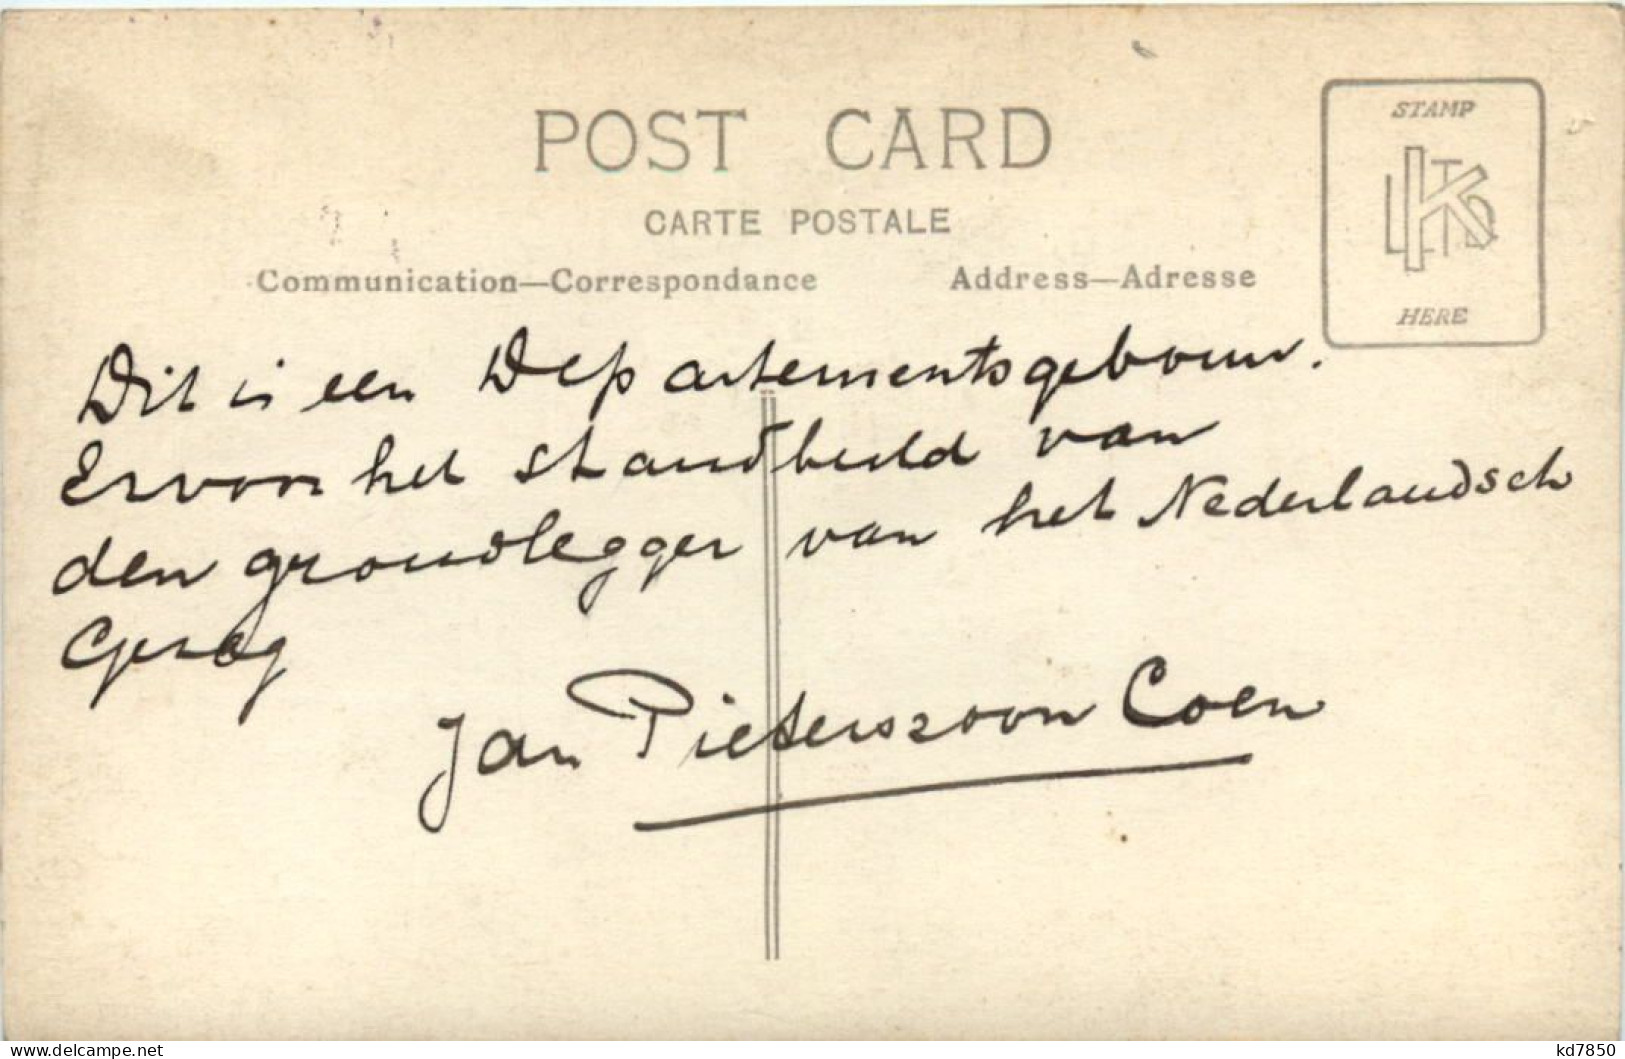 POST CARD
CARTE POSTALE
Communication—Correspondance
Address—Adresse
STAMP
KLTD
HERE
Dit is een Departementsgebouw.
Ervoor het standbeeld van
den grondlegger van het Nederlandsch
Gezag
Jan Pieterszoon Coen
www.delcampe.net
kd7850